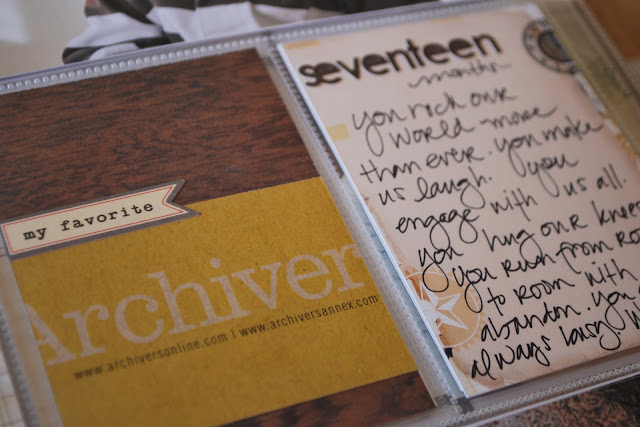 my favorite
Archiver
www.archiversonline.com | www.archiversannex.com
seventeen
months...
you rock our
world - more
than ever. you make
us laugh. you
engage with us all.
you hug our knees
you run from
to room with
abandon. you
always busy